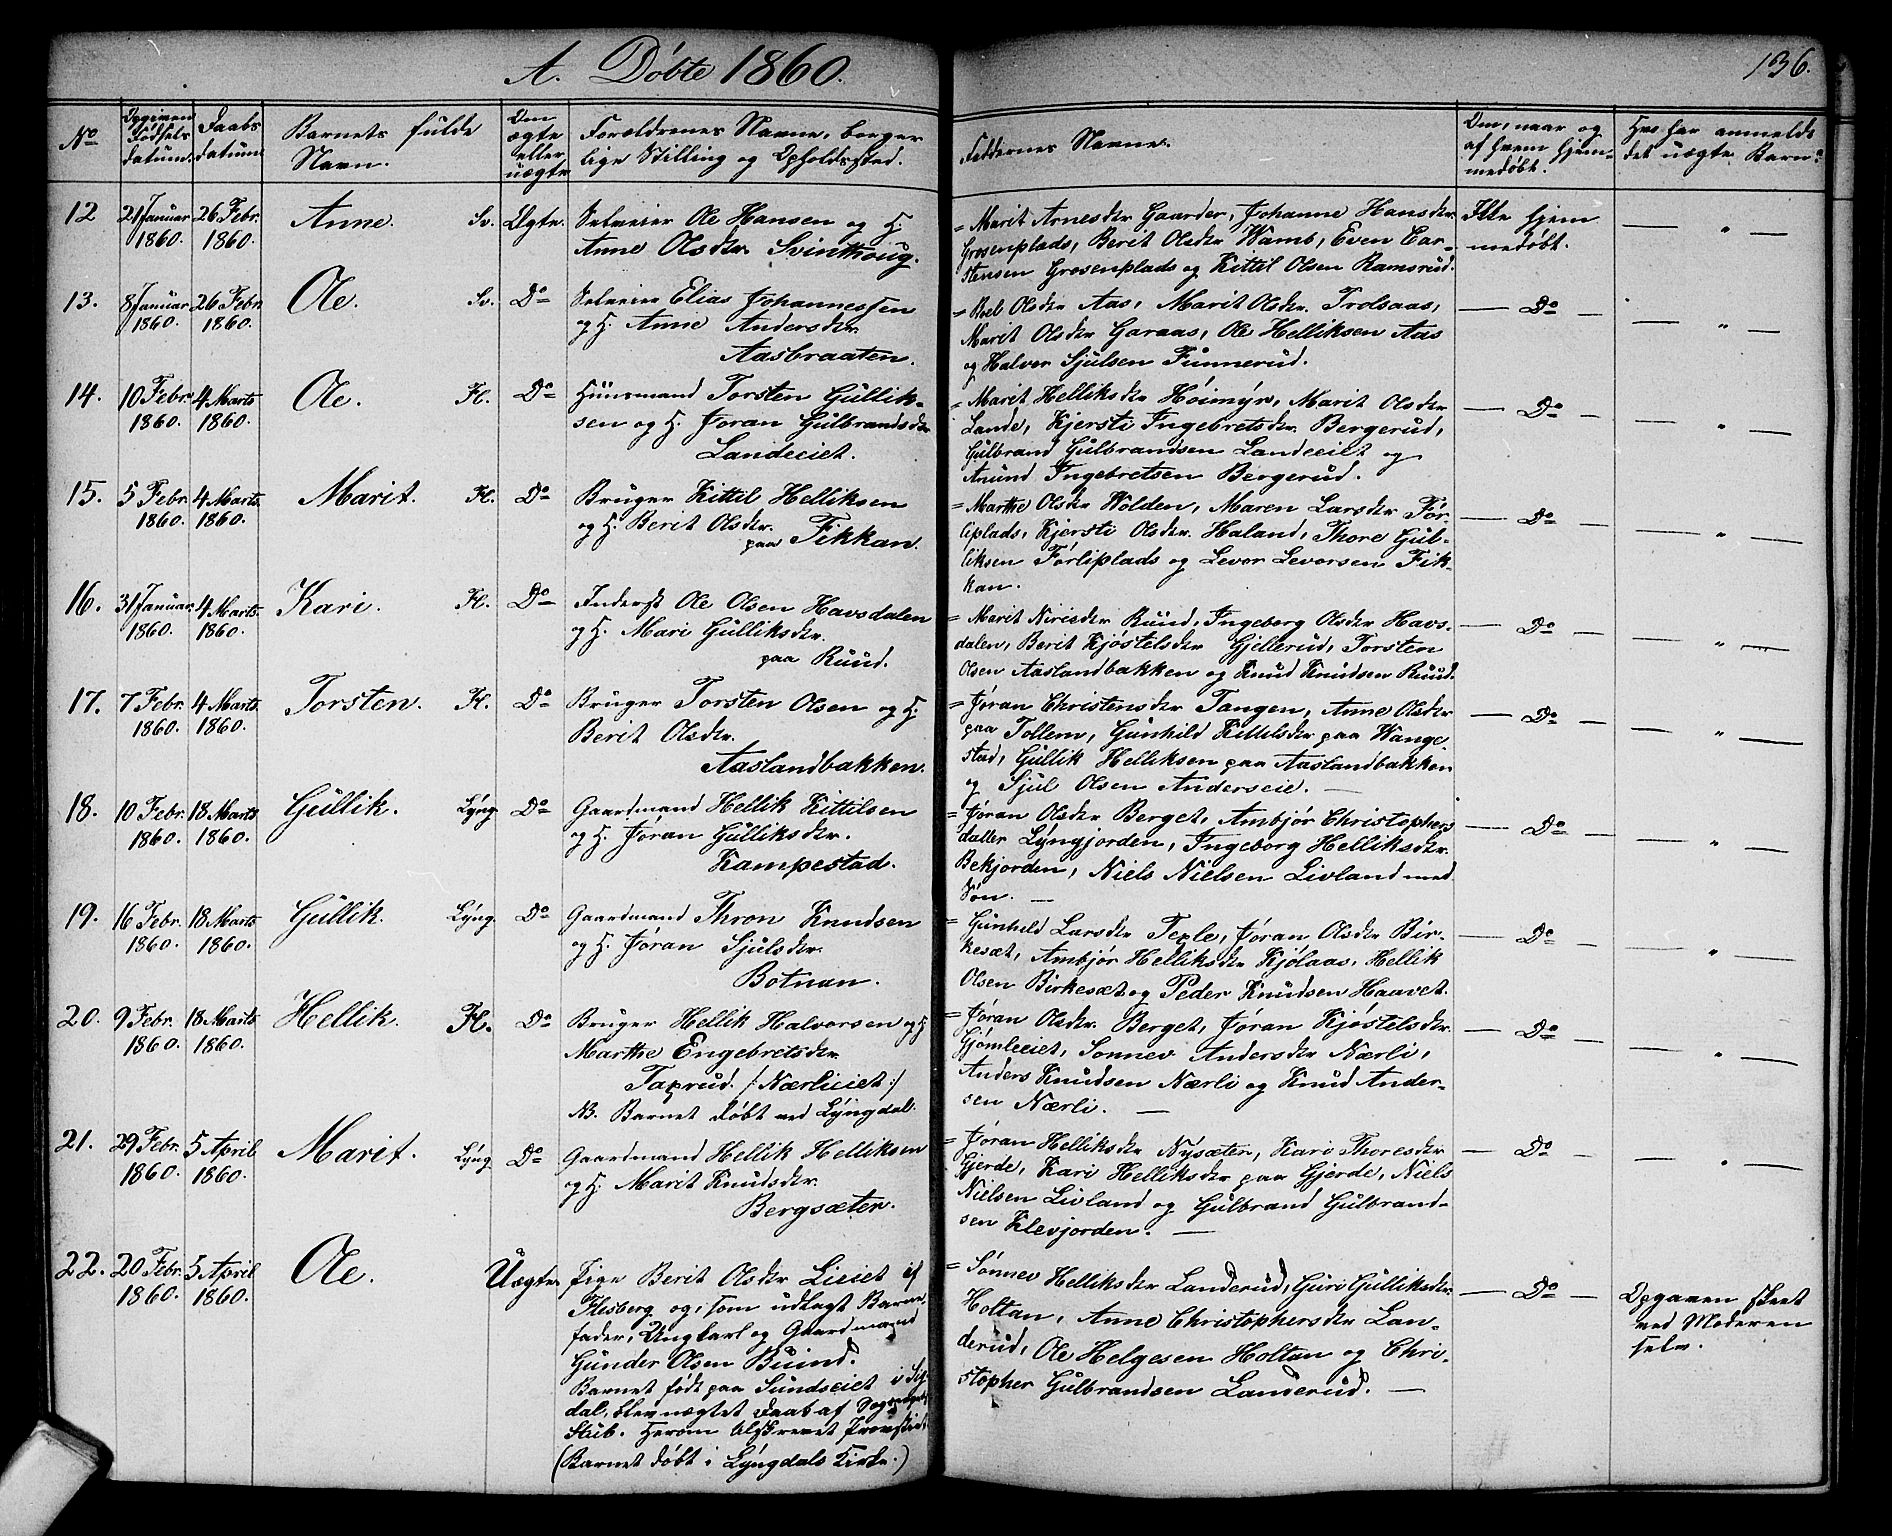 A. Døbte 1860.
136.
No
Opgiven
Fødsels
datum.
Daabs
datum.
Barnets fulde
Navn.
Om
ægte
eller
uægte
Forældrenes Navne, borger
lige Stilling og Opholdssted.
Faddernes Navne.
Om, naar og
af hvem hjem-
medøbt.
Hvo har anmeldt
det uægte Barn.
12 21 Januar 26 Febr. Anne. Sv. Ægte. Selveier Ole Hansen og H.
1860. 1860. Anne Olsdtr. Svinthoug.
= Marit Arnesdtr Gaarder, Johanne Hansdtr
Grosenplads, Berit Olsdtr Wamb, Even Car-
stensen Grosenplads og Kittil Olsen Ramsrud.
Ikke hjem
medøbt.
13. 8 Januar 26 Febr Ole. Sv. Do Selveier Elias Johannessen
1860. 1860. og H. Anne Andersdtr.
Aasbraaten.
= Boel Olsdtr Aas, Marit Olsdtr. Trolsaas,
Marit Olsdtr Garaas, Ole Helliksen Aas
og Halvor Sjulsen Funnerud.
— Do —
14. 10 Febr. 4 Marts Ole. Fl. Do Huusmand Torsten Gullik-
1860. 1860. sen og H. Jøran Gulbrandsdtr
Landeeiet.
= Marit Helliksdtr Høimyr, Marit Olsdtr
Lande, Kjersti Ingebretsdtr. Bergerud,
Gulbrand Gulbrandsen Landeeiet og
Anund Ingebretsen Bergerud.
— Do —
15. 5 Febr. 4 Marts. Marit. Fl. Do Bruger Kittil Helliksen
1860. 1860. og H. Berit Olsdtr.
paa Fikkan.
= Marthe Olsdtr Wolden, Maren Larsdtr För-
liplads, Kjersti Olsdtr. Haland, Thore Gul-
liksen Förliplads og Levor Levorsen Fik-
kan.
— Do —
16. 31 Januar. 4 Marts. Kari. Fl. Do Inderst Ole Olsen Havsdalen
1860. 1860. og H. Mari Gulliksdtr.
paa Ruud.
= Marit Nirisdtr Ruud, Ingeborg Olsdtr Havs-
dalen, Berit Kjøstelsdtr Gjellerud, Torsten
Olsen Aaslandbakken og Knud Knudsen Ruud.
— Do —
17. 7 Febr. 4 Marts. Torsten. Fl. Do Bruger Torsten Olsen og H.
1860. 1860. Berit Olsdtr.
Aaslandbakken.
= Jøran Christensdtr Tangen, Anne Olsdtr
paa Tollem, Gunhild Kittelsdtr paa Wange-
stad, Gullik Helliksen paa Aaslandbakken
og Sjul Olsen Anderseie. —
— Do —
18. 10 Febr. 18 Marts Gullik. Lyng. Do Gaardmand Hellik Kittilsen
1860. 1860. og H. Jøran Gulliksdtr.
Kampestad.
= Jøran Olsdtr Berget, Ambjør Christophers
datter Lyngjorden, Ingeborg Helliksdtr.
Bekjorden, Niels Nielsen Livland med
Søn. —
— Do —
19. 16 Febr. 18 Marts Gullik. Lyng. Do Gaardmand Thron Knudsen
1860. 1860. og H. Jøran Sjulsdtr.
Botnan.
= Gunhild Larsdtr Teple, Jøran Olsdtr Bir-
kesæt, Ambjør Helliksdtr Kjølaas, Hellik
Olsen Birkesæt og Peder Knudsen Haavet.
— Do —
20. 9 Febr. 18 Marts Hellik. Fl. Do Bruger Hellik Halvorsen og H
1860. 1860. Marthe Engebretsdtr.
Taprud. /: Nærlieiet :/
NB. Barnet døbt ved Lyngdal.
= Jøran Olsdtr. Berget, Jøran Kjøstelsdtr.
Gjømleeiet, Sønnev Andersdtr Nærli,
Anders Knudsen Nærli og Knud Ander-
sen Nærli. —
— Do —
21. 29 Febr. 5 April Marit. Lyng Do Gaardmand Hellik Helliksen
1860. 1860. og H. Marit Knudsdtr.
Bergsæter.
= Jøran Helliksdtr Nysæter, Kari Thoresdtr
Gjerde, Kari Helliksdtr paa Gjerde, Niels
Nielsen Livland og Gulbrand Gulbrand-
sen Klevjorden. —
— Do —
22. 20 Febr. 5 April Ole. Uægte. Pige Berit Olsdtr Lieiet af
1860. 1860. Flesberg og, som udlagt Barne-
fader, Ungkarl og Gaardmand
Gunder Olsen Buind.
Barnet født paa Sundseiet i Sig
dal, blev nægtet Daab af Sogneprest
Stub.
(Barnet døbt i Lyngdals Kirke.)
= Sønnev Helliksdtr Landerud, Guri Gulliksdtr.
Holtan, Anne Christophersdtr Lan-
derud, Ole Helgesen Holtan og Chri-
stopher Gulbrandsen Landerud. —
— Do —
Opgaven skeet
ved Moderen
selv.